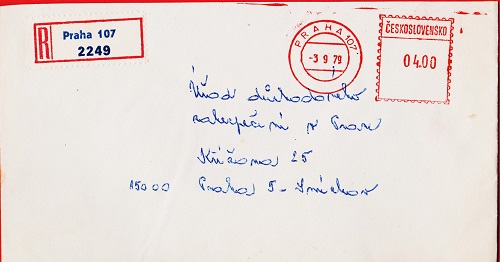 R
Praha 107
2249
PRAHA 107
-3 9 79
ČESKOSLOVENSKO
04.00
Úřad důchodového
zabezpečení v Praze
Křížova 25
15000 Praha 5 - Smíchov